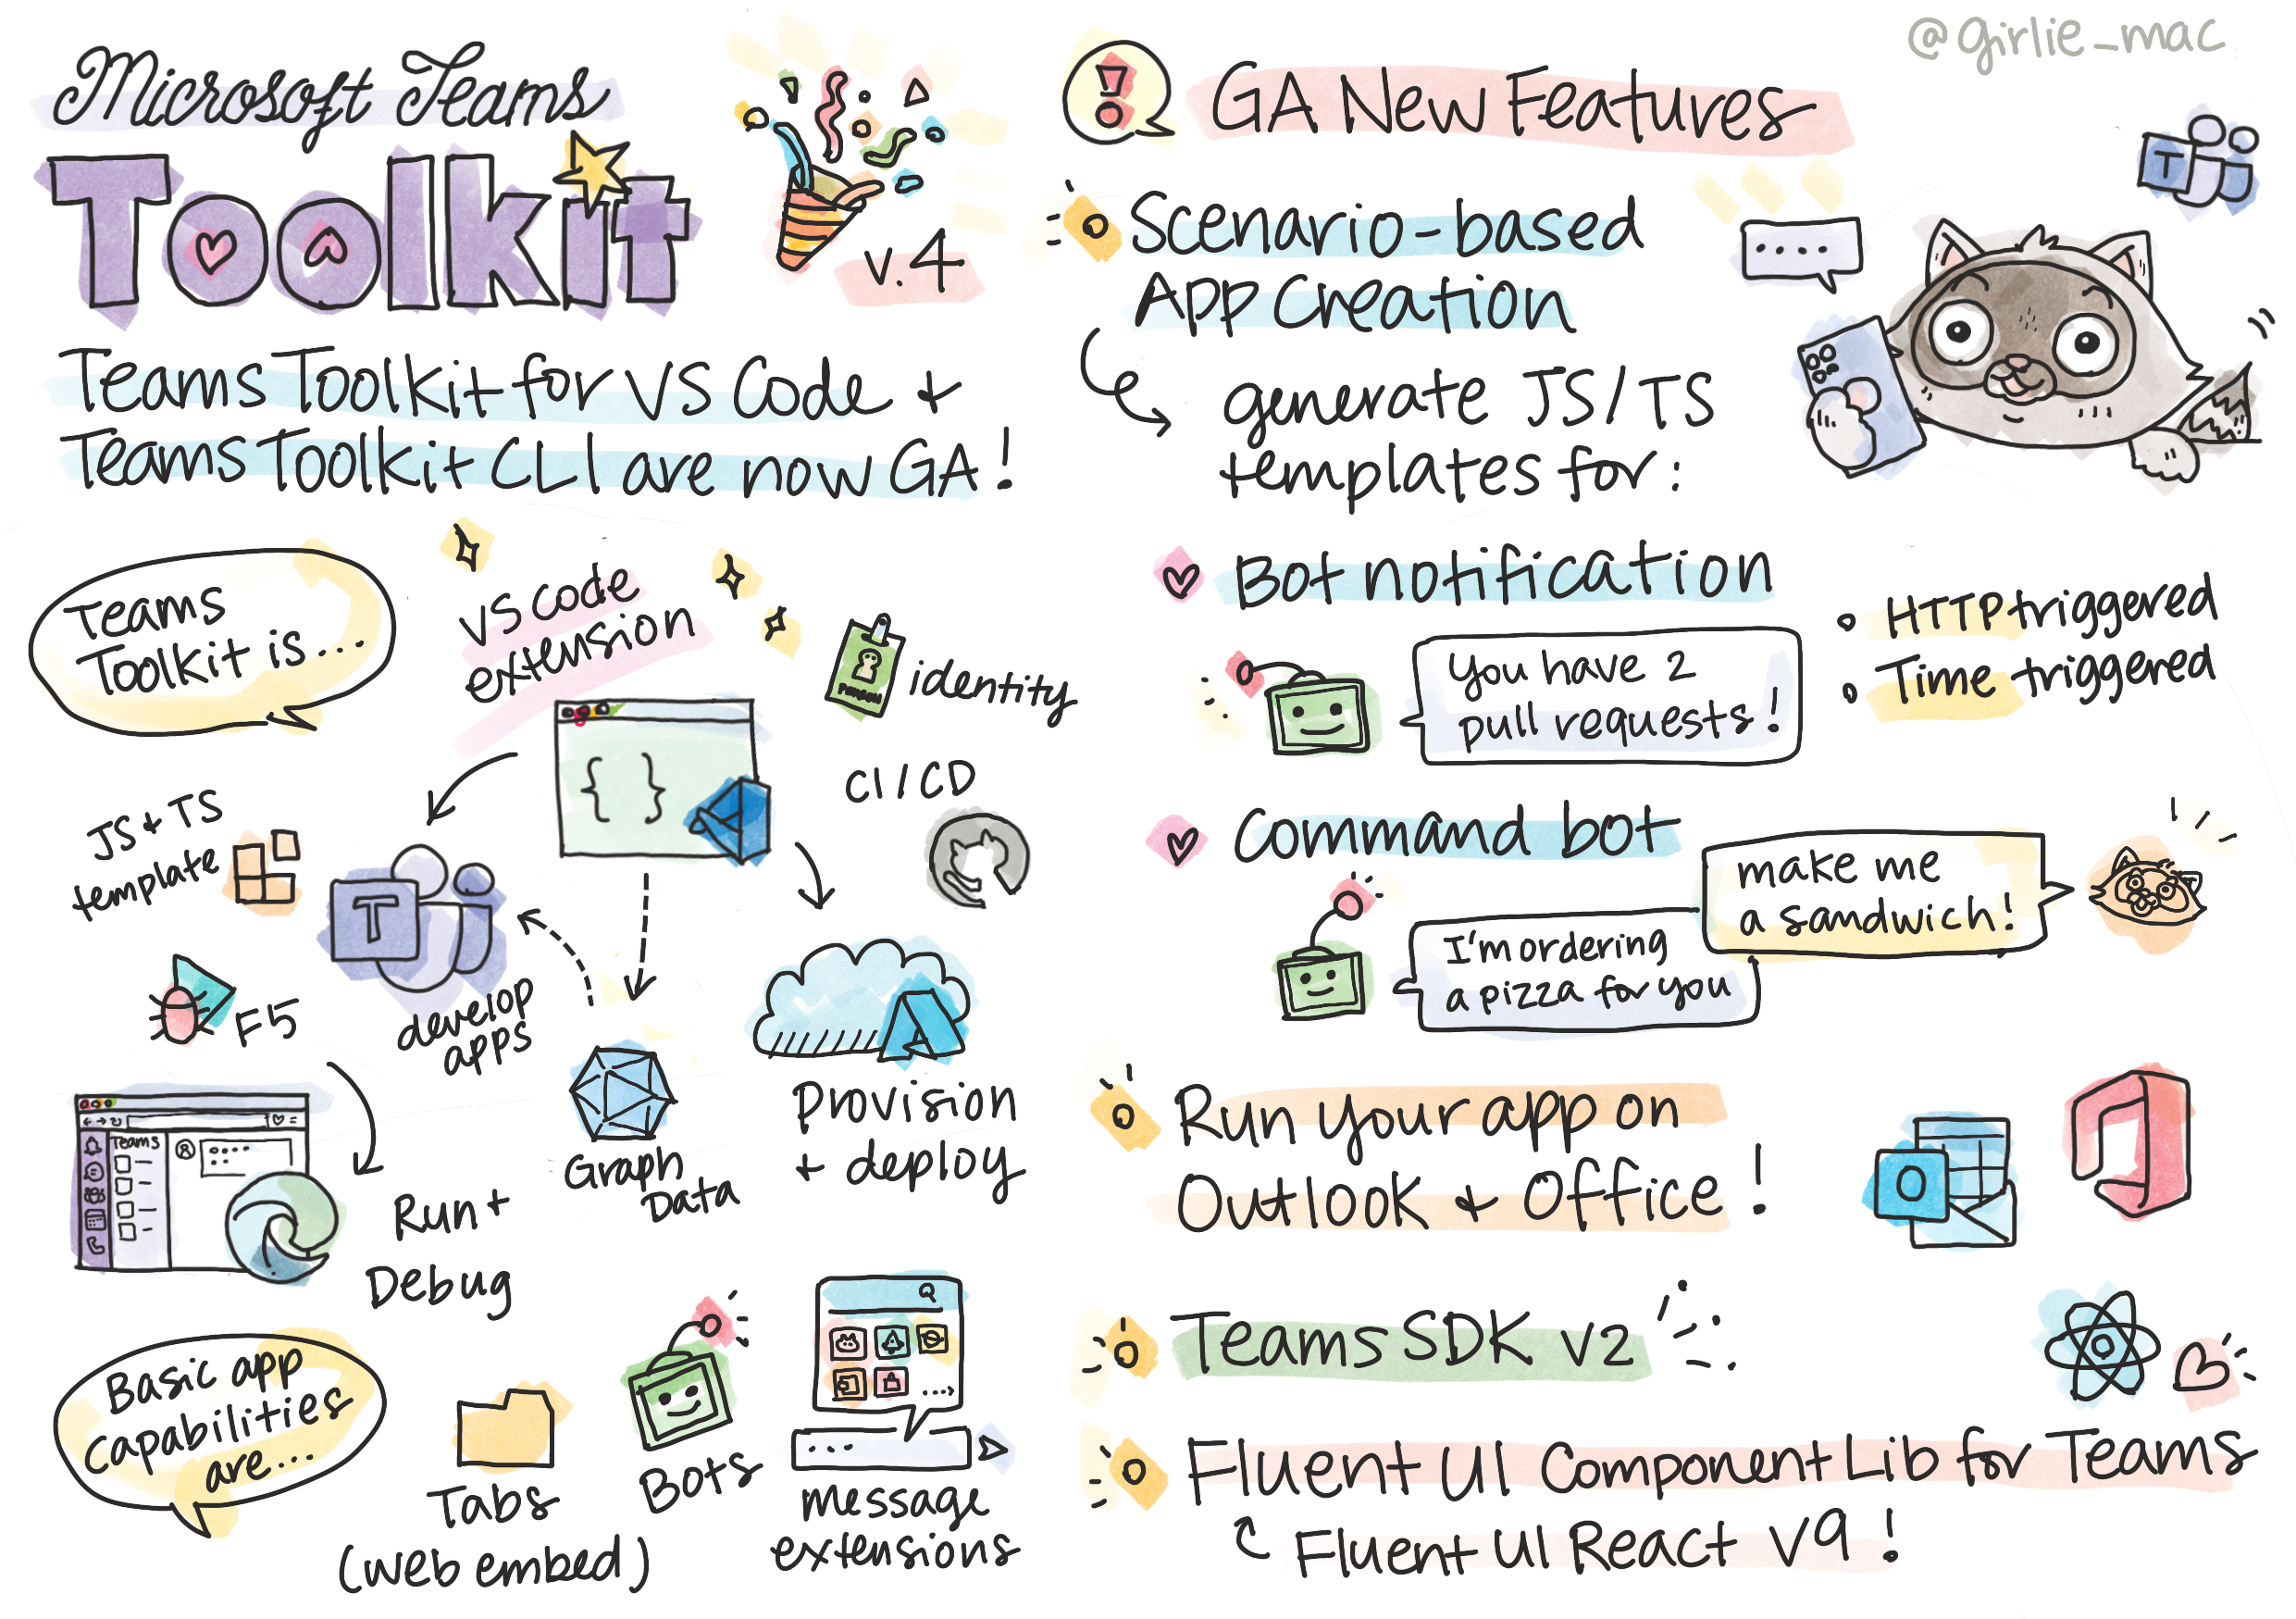 @girlie_mac
Microsoft Teams
Toolkit
v.4
Teams Toolkit for VS Code +
Teams Toolkit CLI are now GA!
Teams
Toolkit is...
VS Code
extension
identity
CI/CD
JS + TS
template
T
develop
apps
F5
Teams
Run +
Debug
Graph
Data
Provision
+ deploy
Basic app
capabilities
are...
Tabs
(web embed)
Bots
message
extensions
GA New Features
T
Scenario-based
App Creation
generate JS/TS
templates for:
Bot notification
You have 2
pull requests!
HTTP triggered
Time triggered
Command bot
make me
a sandwich!
I'm ordering
a pizza for you
Run your app on
Outlook + Office!
O
Teams SDK v2
Fluent UI Component Lib for Teams
Fluent UI React v9!